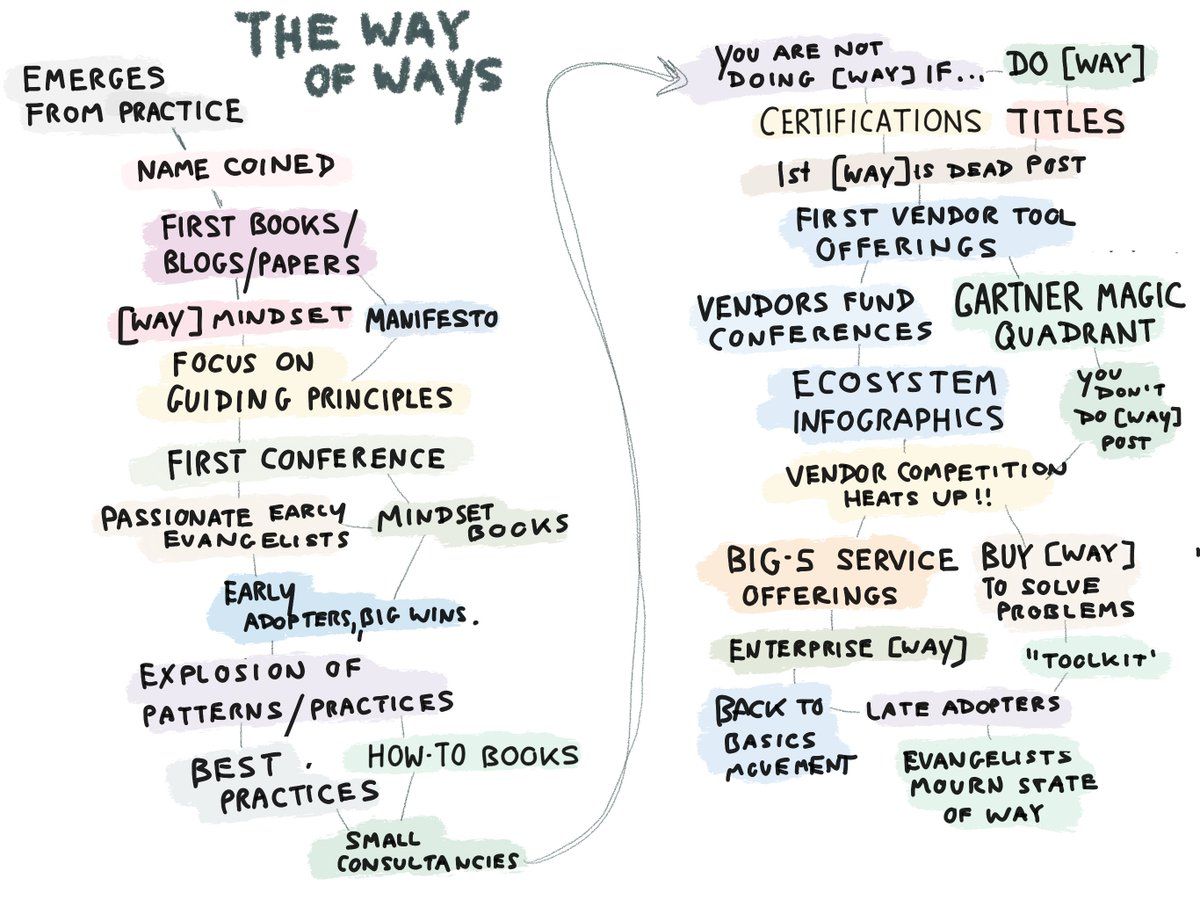 THE WAY
OF WAYS
EMERGES
FROM PRACTICE
NAME COINED
FIRST BOOKS/
BLOGS/PAPERS
[WAY] MINDSET
MANIFESTO
FOCUS ON
GUIDING PRINCIPLES
FIRST CONFERENCE
PASSIONATE EARLY
EVANGELISTS
MINDSET
BOOKS
EARLY
ADOPTERS, BIG WINS.
EXPLOSION OF
PATTERNS/PRACTICES
BEST.
PRACTICES
HOW-TO BOOKS
SMALL
CONSULTANCIES
YOU ARE NOT
DOING [WAY] IF...
DO [WAY]
CERTIFICATIONS
TITLES
1st [WAY] IS DEAD POST
FIRST VENDOR TOOL
OFFERINGS
VENDORS FUND
CONFERENCES
GARTNER MAGIC
QUADRANT
ECOSYSTEM
INFOGRAPHICS
YOU
DON'T
DO [WAY]
POST
VENDOR COMPETITION
HEATS UP!!
BIG-5 SERVICE
OFFERINGS
BUY [WAY]
TO SOLVE
PROBLEMS
ENTERPRISE [WAY]
"TOOLKIT'
BACK TO
BASICS
MOVEMENT
LATE ADOPTERS
EVANGELISTS
MOURN STATE
OF WAY